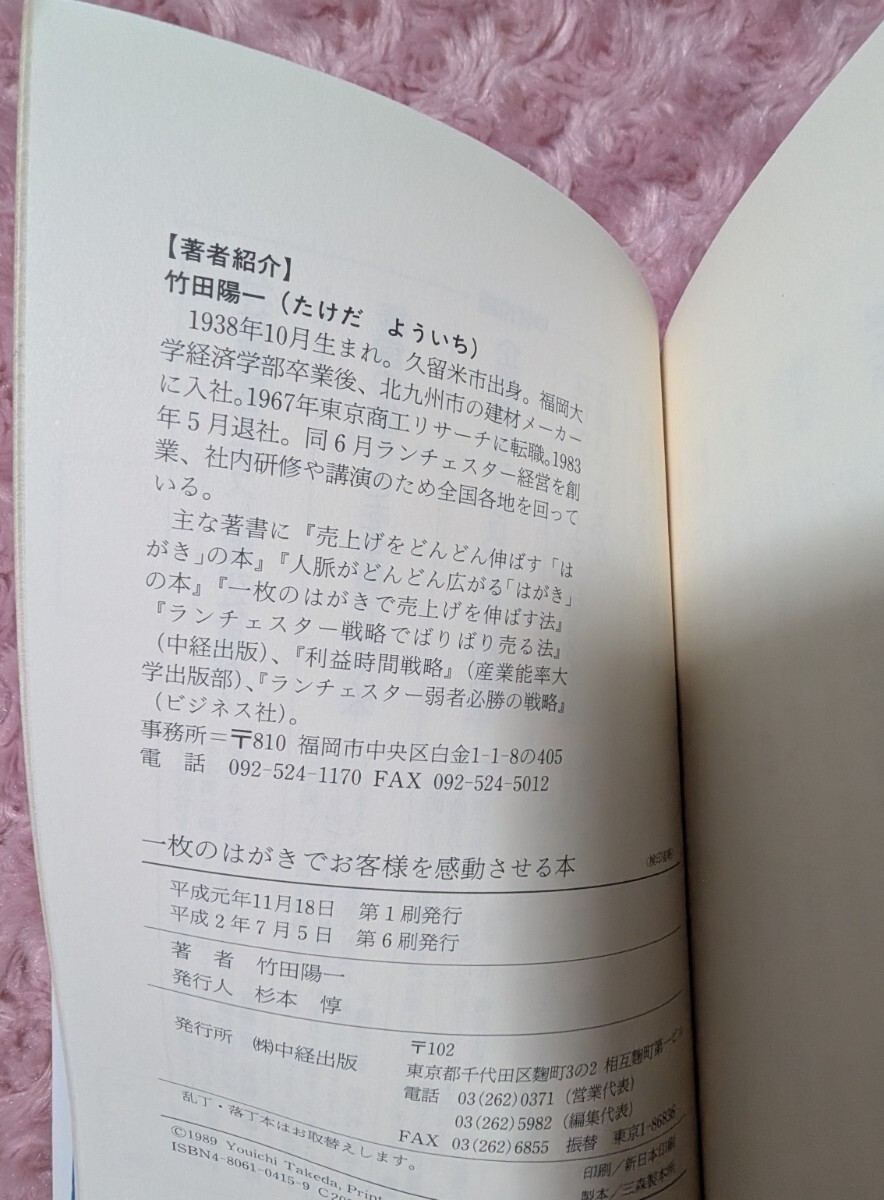 【著者紹介】
竹田陽一（たけだ　よういち）
1938年10月生まれ。久留米市出身。福岡大
学経済学部卒業後、北九州市の建材メーカー
に入社。1967年東京商工リサーチに転職。1983
年5月退社。同6月ランチェスター経営を創
業、社内研修や講演のため全国各地を回って
いる。
主な著書に『売上げをどんどん伸ばす「は
がき」の本』『人脈がどんどん広がる「はがき」
の本』『一枚のはがきで売上げを伸ばす法』
『ランチェスター戦略でばりばり売る法』
（中経出版）、『利益時間戦略』（産業能率大
学出版部）、『ランチェスター弱者必勝の戦略』
（ビジネス社）。
事務所＝〒810 福岡市中央区白金1-1-8の405
電　話　092-524-1170 FAX 092-524-5012
一枚のはがきでお客様を感動させる本　（検印省略）
平成元年11月18日　第1刷発行
平成2年7月5日　第6刷発行
著　者　竹田陽一
発行人　杉本　惇
発行所　㈱中経出版
〒102
東京都千代田区麹町3の2 相互麹町第一ビル
電話　03(262)0371（営業代表）
03(262)5982（編集代表）
FAX 03(262)6855　振替　東京1-86836
乱丁・落丁本はお取替えします。
印刷／新日本印刷
製本／三森製本所
©1989 Youichi Takeda, Print
ISBN4-8061-0415-9 C20